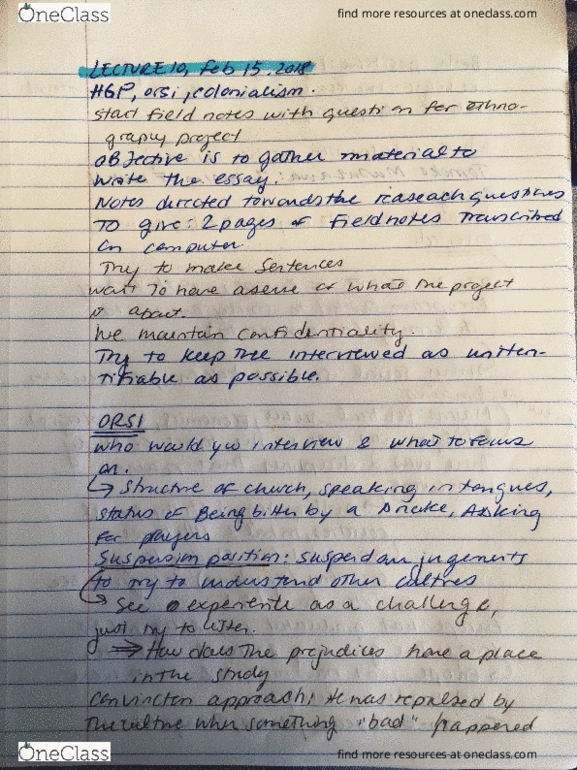 OneClass
find more resources at oneclass.com
LECTURE 10, Feb 15. 2018
HGP, orsi, colonialism.
start field notes with question for ethno-
graphy project
OBJective is to gather material to
write the essay.
Notes directed towards the reaseach questions
To give 2 pages of Field notes Transcribed
in computer.
Try to make sentences
want To have a sense of what the project
is about.
We maintain confidentiality.
Try to keep the interviewed as uniten-
tifiable as possible.
ORSI
who would you interview & what to focus
on.
↳ Structure of church, speaking in tongues,
status of Being bitten by a snake, Asking
for players
Suspension position: suspend our jugements
to try to understand other cultures
↳ See experience as a challenge,
just try to listen.
⇒ How does The prejudices have a place
in the study
conviction approach: He was repulsed by
The culture when something "bad" happened
OneClass
find more resources at oneclass.com